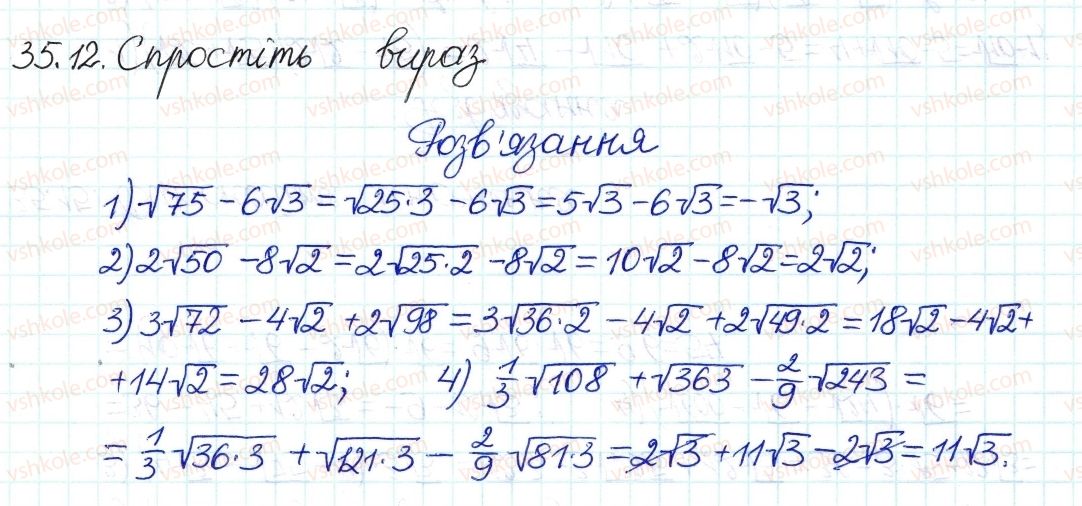 35.12. Спростіть вираз
Розв'язання
1) √75 - 6√3 = √25·3 - 6√3 = 5√3 - 6√3 = -√3;
2) 2√50 - 8√2 = 2√25·2 - 8√2 = 10√2 - 8√2 = 2√2;
3) 3√72 - 4√2 + 2√98 = 3√36·2 - 4√2 + 2√49·2 = 18√2 - 4√2 +
+ 14√2 = 28√2; 4) 1/3 √108 + √363 - 2/9 √243 =
= 1/3 √36·3 + √121·3 - 2/9 √81·3 = 2√3 + 11√3 - 2√3 = 11√3.